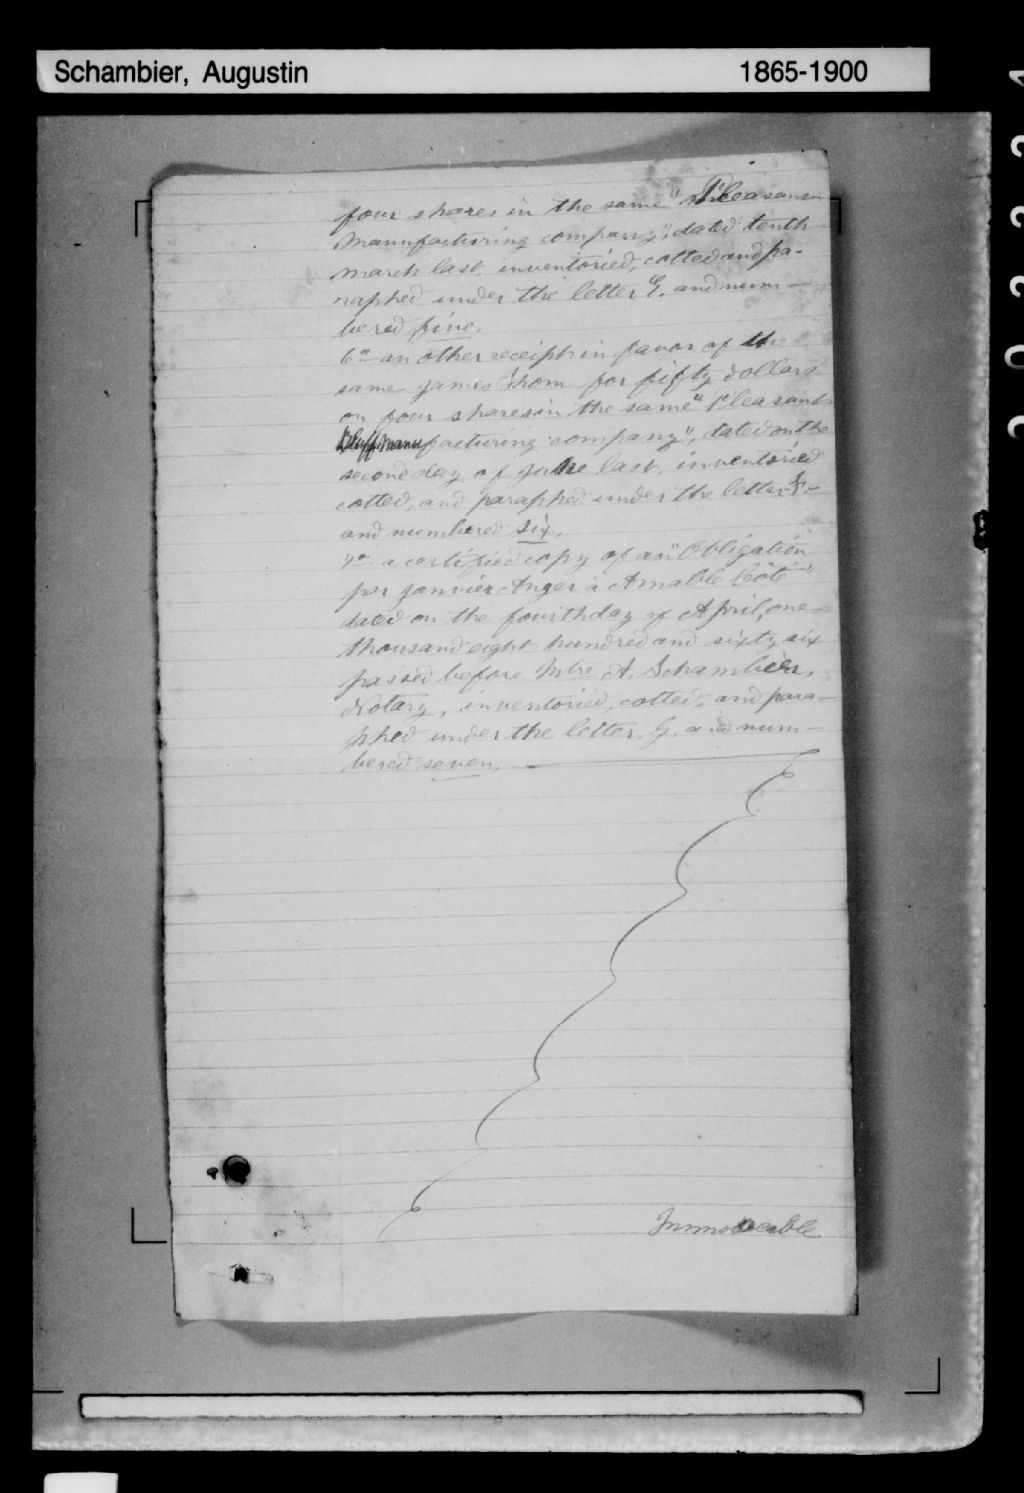 Schambier, Augustin 1865-1900
four shares in the same "Pleasant
Manufacturing company", dated tenth
march last, inventoried, cotted and pa-
raphed under the letter E. and num-
bered five.
6o an other receipt in favor of the
same James Thom for fifty dollars
on four shares in the same "Pleasant
Bluff Manufacturing company", dated on the
second day of June last, inventoried
cotted, and paraphed under the letter F.-
and numbered six.
7o a certified copy of an "Obligation
par Janvier Anger à Amable Côté"
dated on the fourth day of April, one
thousand eight hundred and sixty six
passed before Mtre A. Schambier,
Notary, inventoried, cotted, and para-
phed under the letter, G. and num-
bered seven.
Immoveable